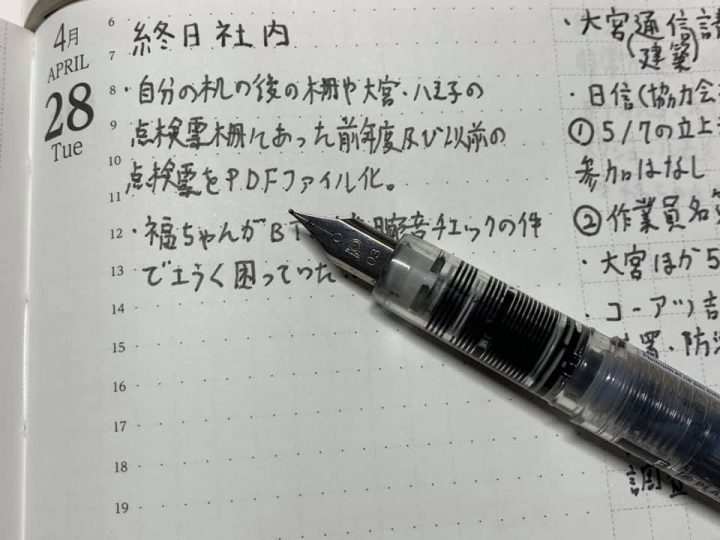 4月
APRIL
28
Tue
6
7
8
9
10
11
12
13
14
15
16
17
18
19
終日社内
・自分の机の後の棚や大宮・八王子の
点検票棚にあった前年度及び以前の
点検票をPDFファイル化。
・福ちゃんがB 騒音チェックの件
でエラく困っていた
・大宮通信
(建築)
・日信(協力会
① 5/7の立上
参加はなし
② 作業員名
・大宮ほか5
・コーアツ
・防
調査
03